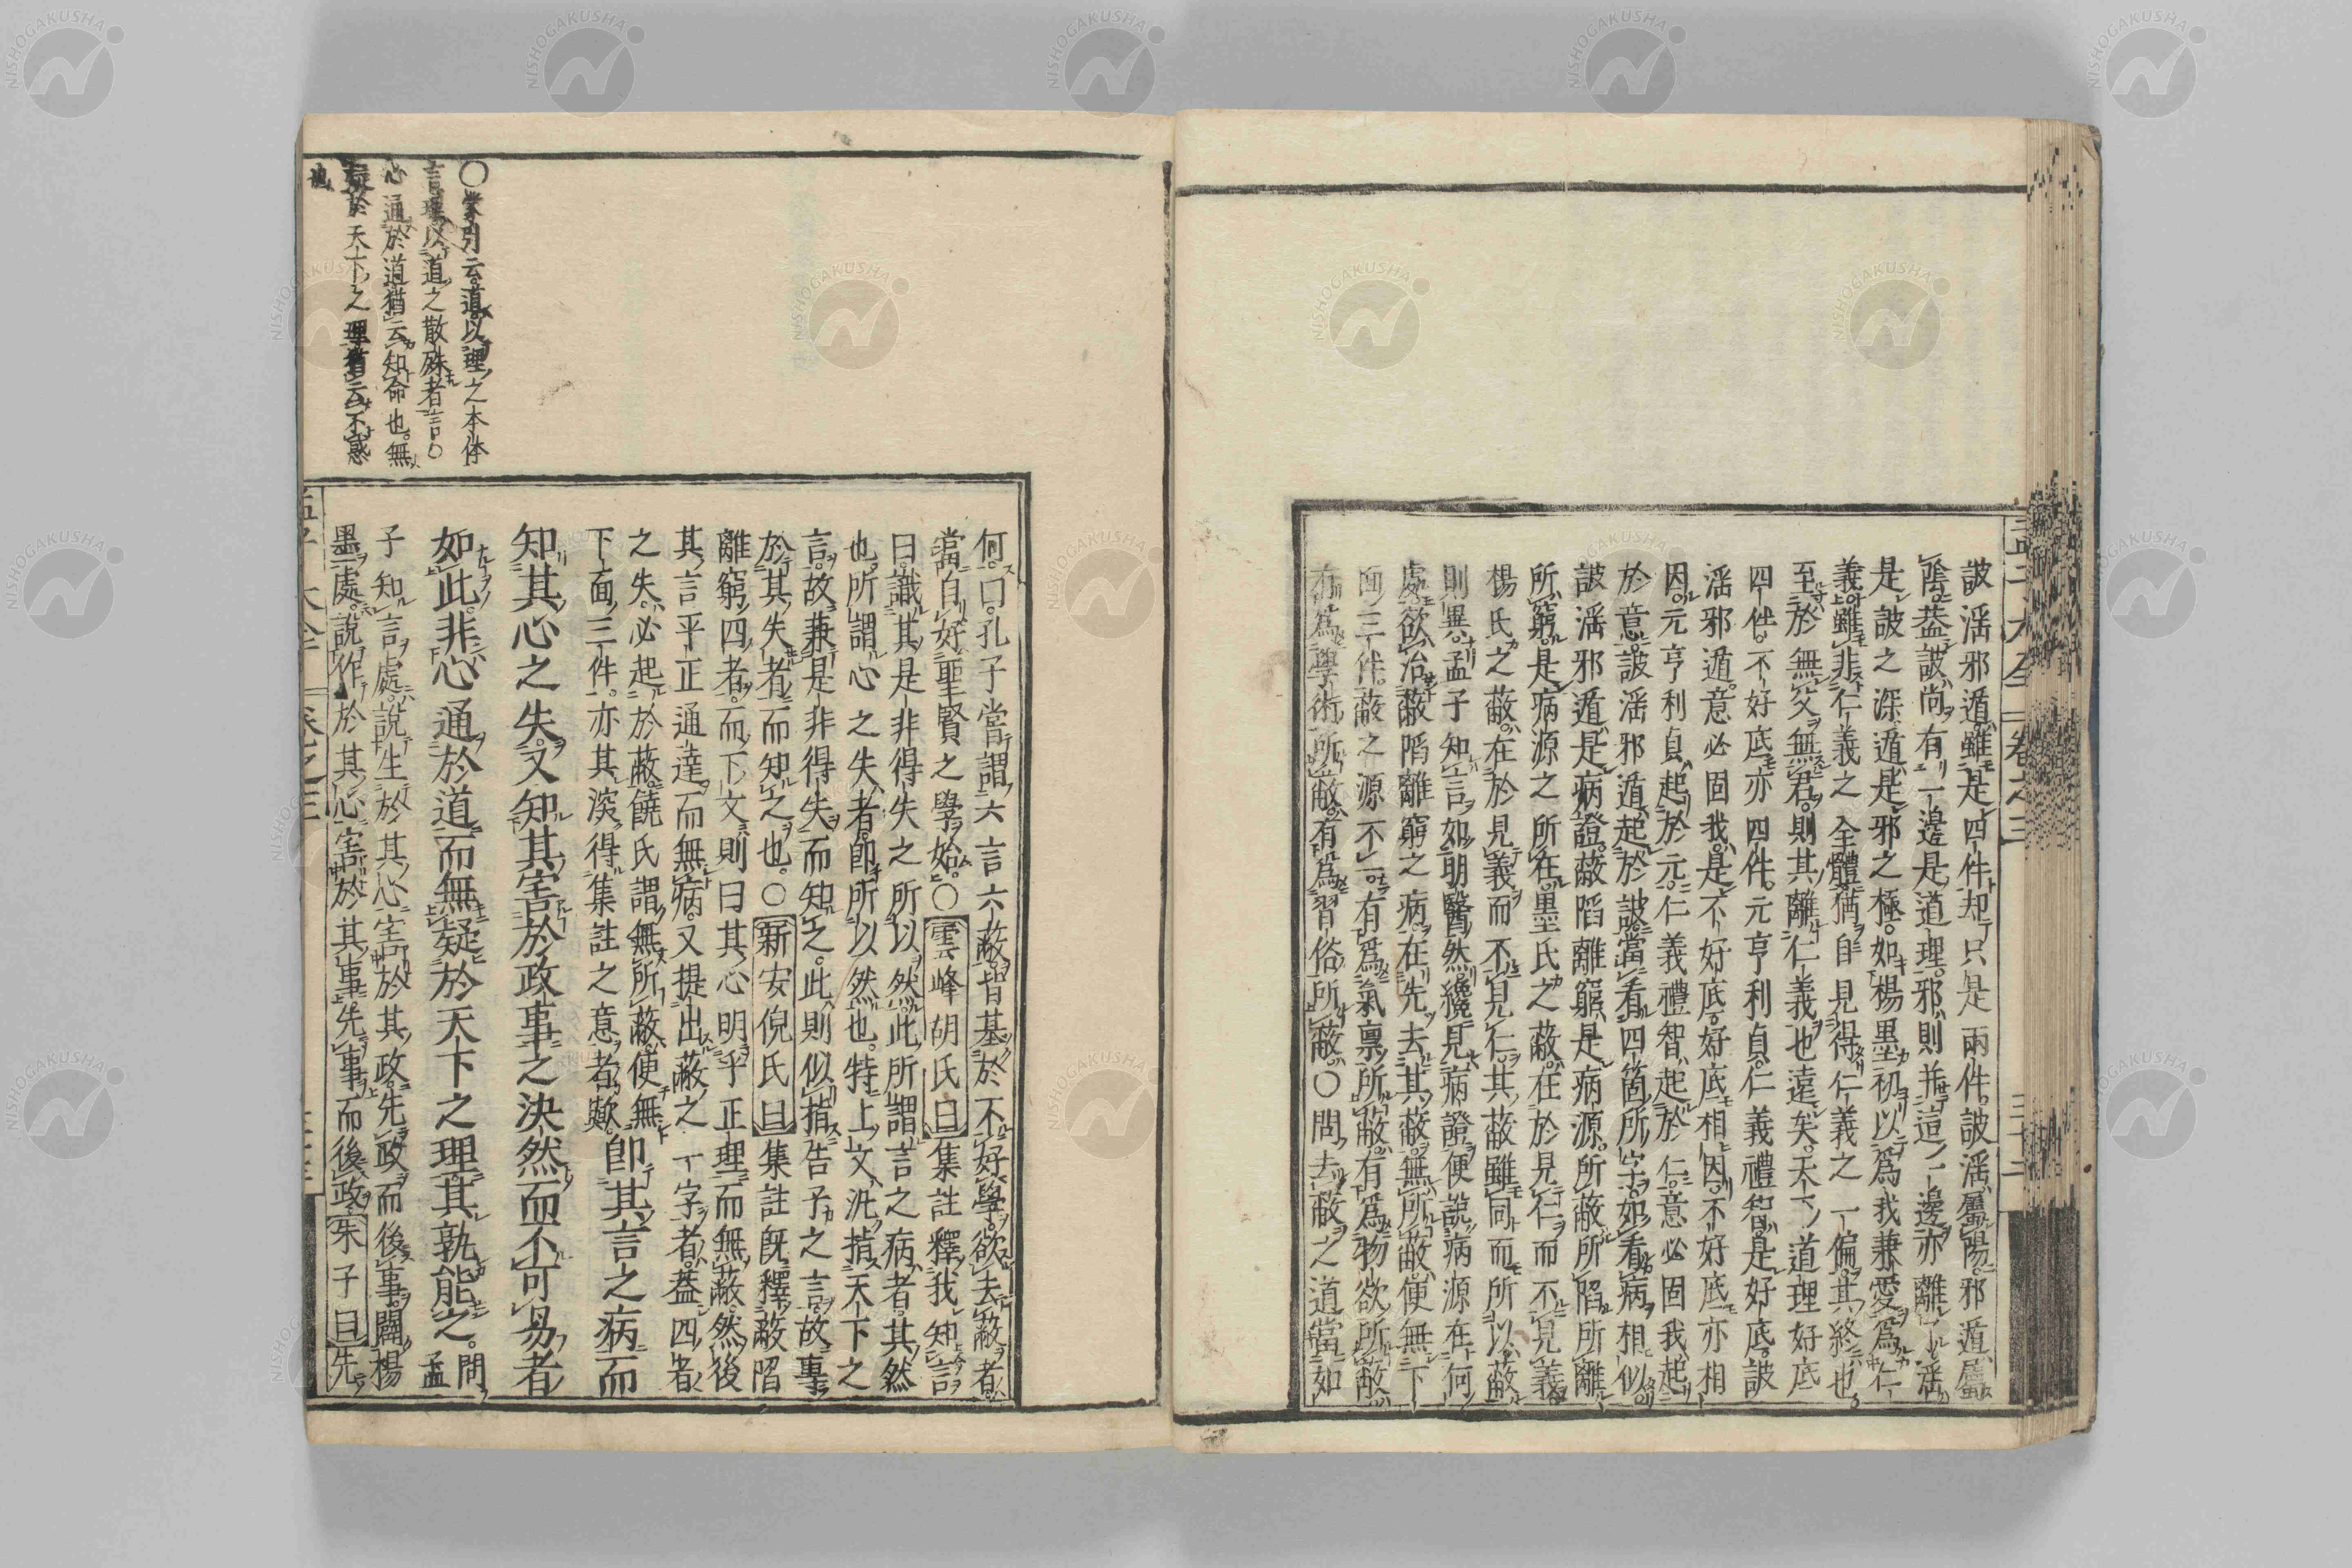 詖淫邪遁雖是四件却只是兩件詖淫屬陽邪遁屬
陰葢詖尚有一邊是道理邪則并這一邊亦離下淫
是詖之深遁是邪之極如楊墨初以爲我兼愛爲仁
義雖非仁義之全體猶自見得仁義之一偏其終也
至於無父無君則其離仁義也遠矣天下道理好底
四件不好底亦四件元亨利貞仁義禮智是好底詖
淫邪遁意必固我是不好底好底相因不好底亦相
因元亨利貞起於元仁義禮智起於仁意必固我起
於意詖淫邪遁起於詖當看四箇所字如看病相似
詖淫邪遁是病證蔽陷離窮是病源所蔽所陷所離
所窮是病源之所在墨氏之蔽在於見仁而不見義
楊氏之蔽在於見義而不見仁其蔽雖同而所以蔽
則異孟子知言如明醫然纔見病證便說病源在何
處欲治蔽陷離窮之病在先去其蔽無所蔽便無下
面三件蔽之源不一有爲氣禀所蔽有爲物欲所蔽
有爲學術所蔽有爲習俗所蔽○問去蔽之道當如
○蒙引云道以理之本体
言理以道之散殊者言○
心通於道猶云知命也無
疑於天下之理猶云不惑
也
何曰孔子當謂六言六蔽皆基於不好學欲去蔽者
當自好聖賢之學始○雲峰胡氏曰集註釋我知言
曰識其是非得失之所以然此所謂言之病者其然
也所謂心之失者卽所以然也特上文汎指天下之
言故兼是非得失而知之此則似指告子之言故專
於其失者而知之也○新安倪氏曰集註旣釋蔽陷
離窮四者而下文則曰其心明乎正理而無蔽然後
其言平正通達而無病又提出蔽之一字者葢四者
之失必起於蔽饒氏謂無所蔽便無
下面三件亦其深得集註之意者歟卽其言之病而
知其心之失又知其害於政事之決然而不可易者
如此非心通於道而無疑於天下之理其孰能之問孟
子知言處說生於其心害於其政先政而後事闢楊
墨處說作於其心害於其事先事而後政朱子曰先